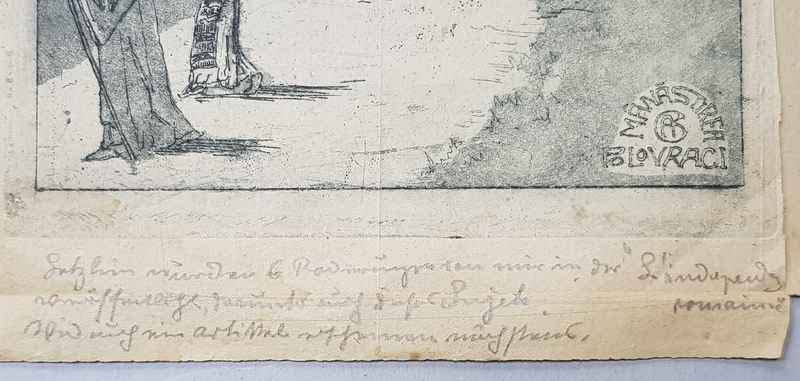 MÂNĂSTIREA
POLOVRACI
Letzthin wurden 6 Radierungen von mir in der "L'independ
roumaine
veröffentlicht, darunter auch dieses
Wird auch ein Artikel erscheinen nächstens.